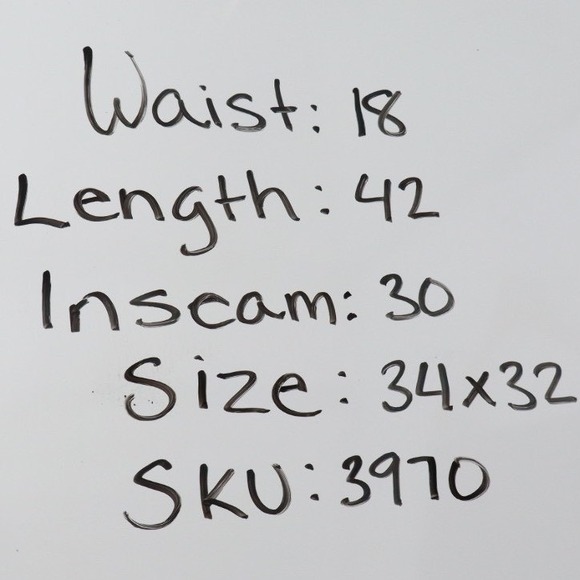 Waist: 18
Length: 42
Inseam: 30
Size: 34x32
SKU: 3970